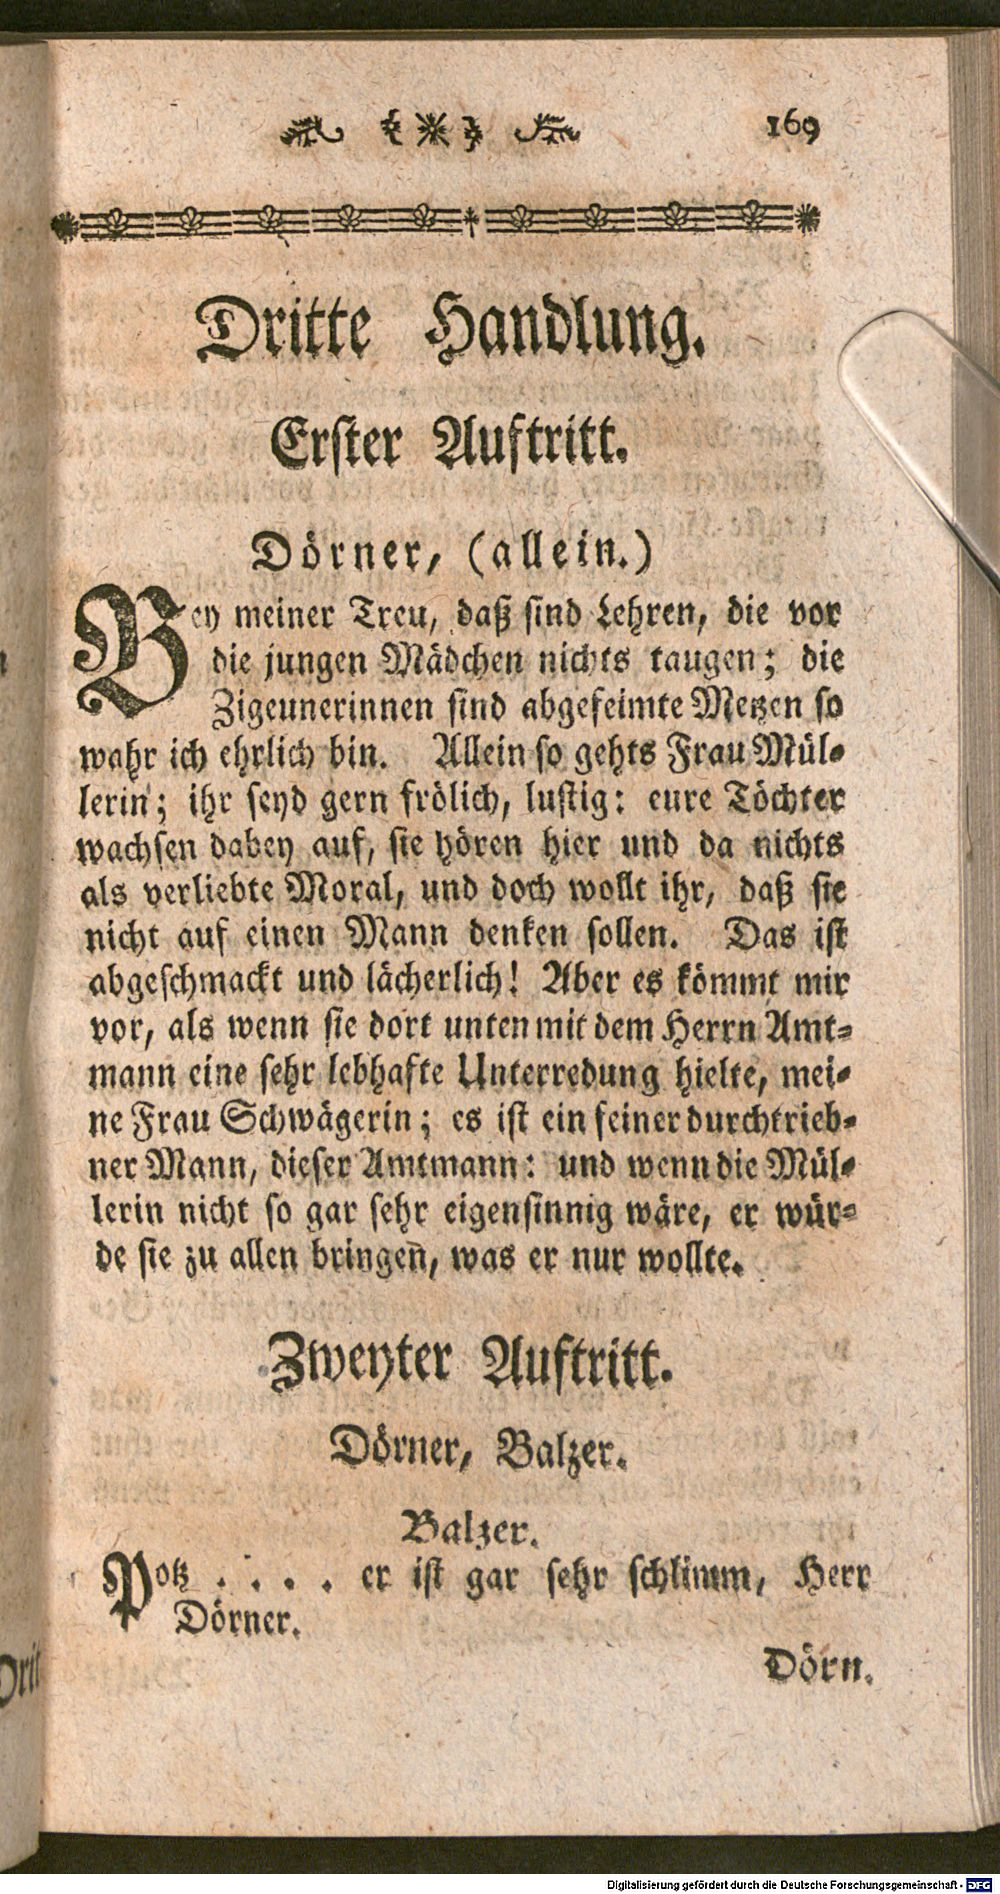 169
Dritte Handlung.
Erster Auftritt.
Dörner, (allein.)
Bey meiner Treu, daß sind Lehren, die vor
die jungen Mädchen nichts taugen; die
Zigeunerinnen sind abgefeimte Metzen so
wahr ich ehrlich bin. Allein so gehts Frau Mül-
lerin; ihr seyd gern frölich, lustig: eure Töchter
wachsen dabey auf, sie hören hier und da nichts
als verliebte Moral, und doch wollt ihr, daß sie
nicht auf einen Mann denken sollen. Das ist
abgeschmackt und lächerlich! Aber es kömmt mir
vor, als wenn sie dort unten mit dem Herrn Amt-
mann eine sehr lebhafte Unterredung hielte, mei-
ne Frau Schwägerin; es ist ein feiner durchtrieb-
ner Mann, dieser Amtmann: und wenn die Mül-
lerin nicht so gar sehr eigensinnig wäre, er wür-
de sie zu allen bringen̄, was er nur wollte.
Zweyter Auftritt.
Dörner, Balzer.
Balzer.
Potz . . . . er ist gar sehr schlimm, Herr
Dörner.
Dörn.
Drit
Digitalisierung gefördert durch die Deutsche Forschungsgemeinschaft - DFG